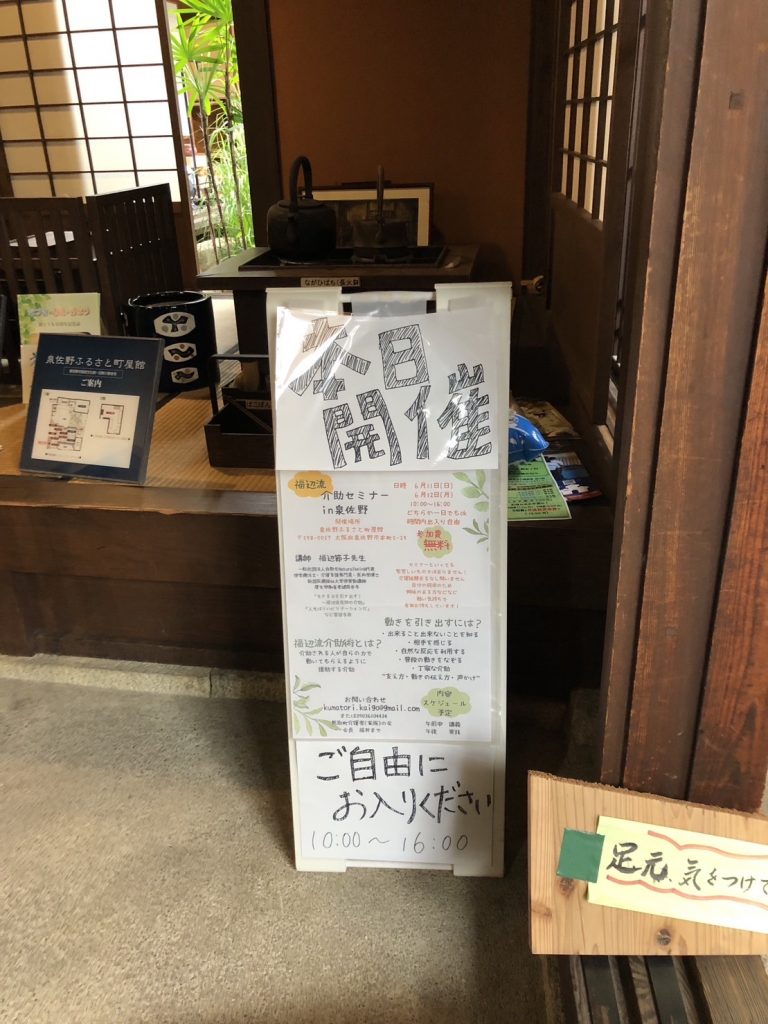 本日
開催
福辺流
介助セミナー
in泉佐野
開催場所
泉佐野ふるさと町屋館
日時 6月11日(日)
6月12日(月)
10:00~16:00
どちらか一日でも休
時間内出入り自由
参加費
無料
講師 福辺節子先生
福辺流介助術とは?
介助される人が自らの力で
動いてもらえるように
援助する介助
動きを引き出すには?
・出来ること出来ないことを知る
・相手を感じる
・自然な反応を利用する
・普段の動きをなぞる
・丁寧な介助
"支え方・動きの伝え方・声かけ"
お問い合わせ
kumatori.kai90@gmail.com
内容
スケジュール
予定
午前中 講義
午後 実技
ご自由に
お入りください
10:00〜16:00
泉佐野ふるさと町屋館
ご案内
ながひばち(長火鉢)
足元、気をつけて